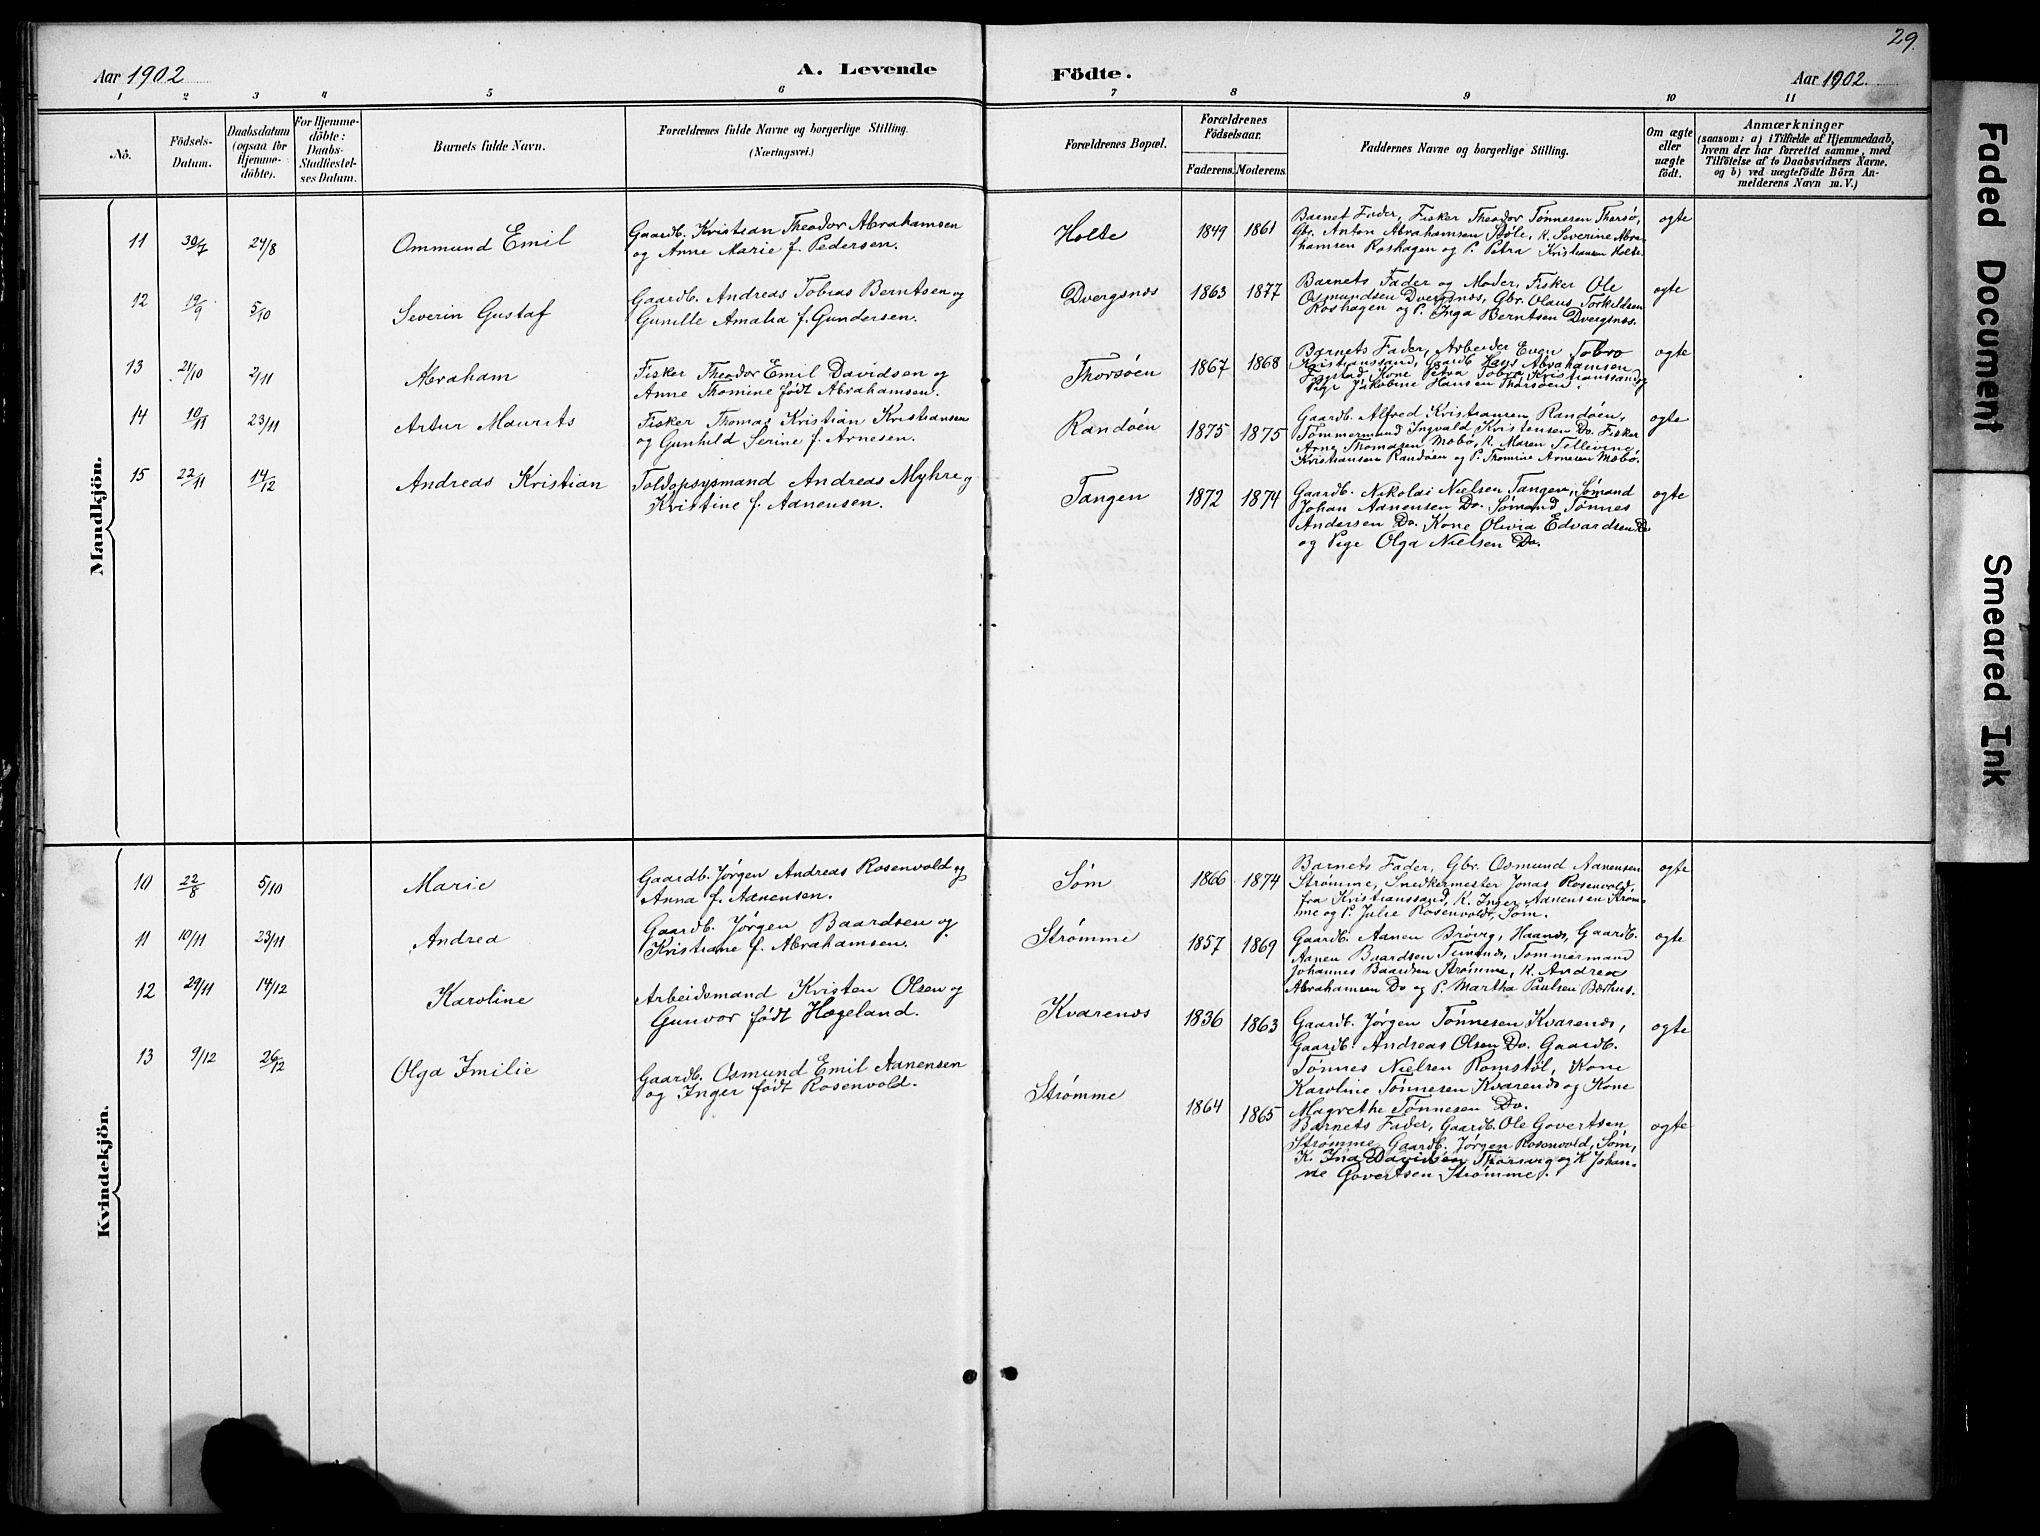 29.
Aar 1902
A. Levende
Födte.
Aar 1902.
1 2 3 4 5 6 7 8 9 10 11
Nö.
Födsels-
Datum.
Daabsdatum
(ogsaa for
Hjemme-
döbte).
For Hjemme-
döbte:
Daabs-
Stadfæstel-
ses Datum.
Barnets fulde Navn.
Forældrenes fulde Navne og borgerlige Stilling.
(Næringsvei.)
Forældrenes Bopæl.
Forældrenes
Födselsaar.
Faderens. Moderens.
Faddernes Navne og borgerlige Stilling.
Om ægte
eller
uægte
födt.
Anmærkninger
(saasom: a) i Tilfælde af Hjemmedaab,
hvem der har forrettet samme, med
Tilföielse af to Daabsvidners Navne.
og b) ved uægtefödte Börn An-
melderens Navn m.V.)
Mandkjön.
11 30/7 24/8 Ommund Emil
Gaardb. Kristian Theodor Abrahamsen
og Anne Marie f. Pedersen.
Holte 1849 1861
Barnet Fader, Fisker Theodor Tønnesen Thorsø,
Gbr. Anton Abrahamsen Støle, K. Severine Abra-
hamsen Roshagen og P. Petra Kristiansen Holte.
ogte
12 19/9 5/10 Severin Gustaf
Gaardb. Andreas Tobias Berntsen og
Gunille Amalia f. Gundersen.
Dvergsnæs 1863 1877
Barnets Fader og Moder, Fisker Ole
Osmundsen Dvergsnæs, Gbr. Olaus Torkildsen
Roshagen og P. Inga Berntsen Dvergsnæs.
ogte
13 21/10 2/11 Abraham
Fisker Theodor Emil Davidsen og
Anne Thomine født Abrahamsen.
Thorsøen 1867 1868
Barnets Fader, Arbeider Even Tobro
Kristianssand, Gaardb. Hans Abrahamsen
Kone Petra Tobro Kristianssand og
Pige Jakobine Hansen Thorsøen.
ogte
14 10/11 23/11 Artur Maurits
Fisker Thomas Kristian Kristiansen
og Gunhild Serine f. Arnesen.
Randøen 1875 1875
Gaardb. Alfred Kristiansen Randøen,
Tømmermand Ingvald Kristensen Do. Fisker
Arne Thomasen Mæbø, K. Maren Tellevine
Kristiansen Randøen og P. Thomine Arnesen Mæbø.
ogte
15 22/11 14/12 Andreas Kristian
Toldopsysmand Andreas Myhre og
Kristine f. Aanensen.
Tangen 1872 1874
Gaardb. Nikolai Nielsen Tangen, Sømand
Johan Aanensen Do. Sømand Tønnes
Andersen Do. Kone Olivia Edvardsen Do
og Pige Olga Nielsen Do.
ogte
Kvindekjön.
10 22/8 5/10 Marie
Gaardb. Jørgen Andreas Rosenvold og
Anna f. Aanensen.
Søm 1866 1874
Barnets Fader, Gbr. Osmund Aanensen
Strømme, Snedkermester Jonas Rosenvold
fra Kristianssand, K. Inger Aanensen Strøm-
me og P. Julie Rosenvold, Søm.
ogte
11 10/11 23/11 Andrea
Gaardb. Jørgen Baardsen og
Kristiane f. Abrahamsen.
Strømme 1857 1869
Gaardb. Aanen Brøvig, Haanes, Gaardb.
Aanen Baardsen Timenes, Tømmermand
Johannes Baardsen Strømme, K. Andrea
Abrahamsen Do og P. Martha Paulsen Bærhus.
ogte
12 29/11 14/12 Karoline
Arbeidsmand Kristen Olsen og
Gunvor født Hægeland.
Kvarenæs 1836 1863
Gaardb. Jørgen Tønnesen Kvarenæs,
Gaardb. Andreas Olsen Do. Gaardb.
Tønnes Nielsen Romstøl, Kone
Karoline Tønnesen Kvarenæs og Kone
Magrethe Tønnesen Do.
ogte
13 9/12 26/12 Olga Imilie
Gaardb. Osmund Emil Aanensen
og Inger født Rosenvold.
Strømme 1864 1865
Barnets Fader, Gaardb. Ole Govertsen
Strømme, Gaardb. Jørgen Rosenvold, Søm,
K. Ina Davidsen Thorsvig og K Johan-
ne Govertsen Strømme.
ogte
Faded Document
Smeared Ink